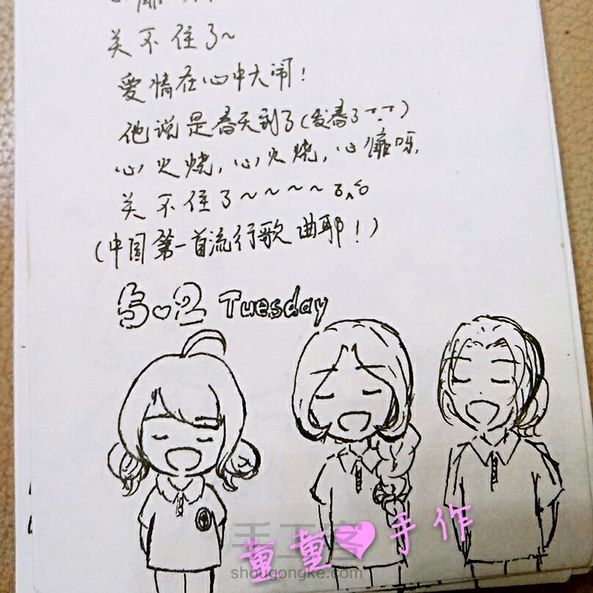 关不住了~
爱情在心中大闹！
他说是春天到了(发春了T_T)
心火烧，心火烧，心痛呀，
关不住了~~~~
(中国第一首流行歌曲耶！)
5.2 Tuesday
重重❤手作
手工客
shougongke.com